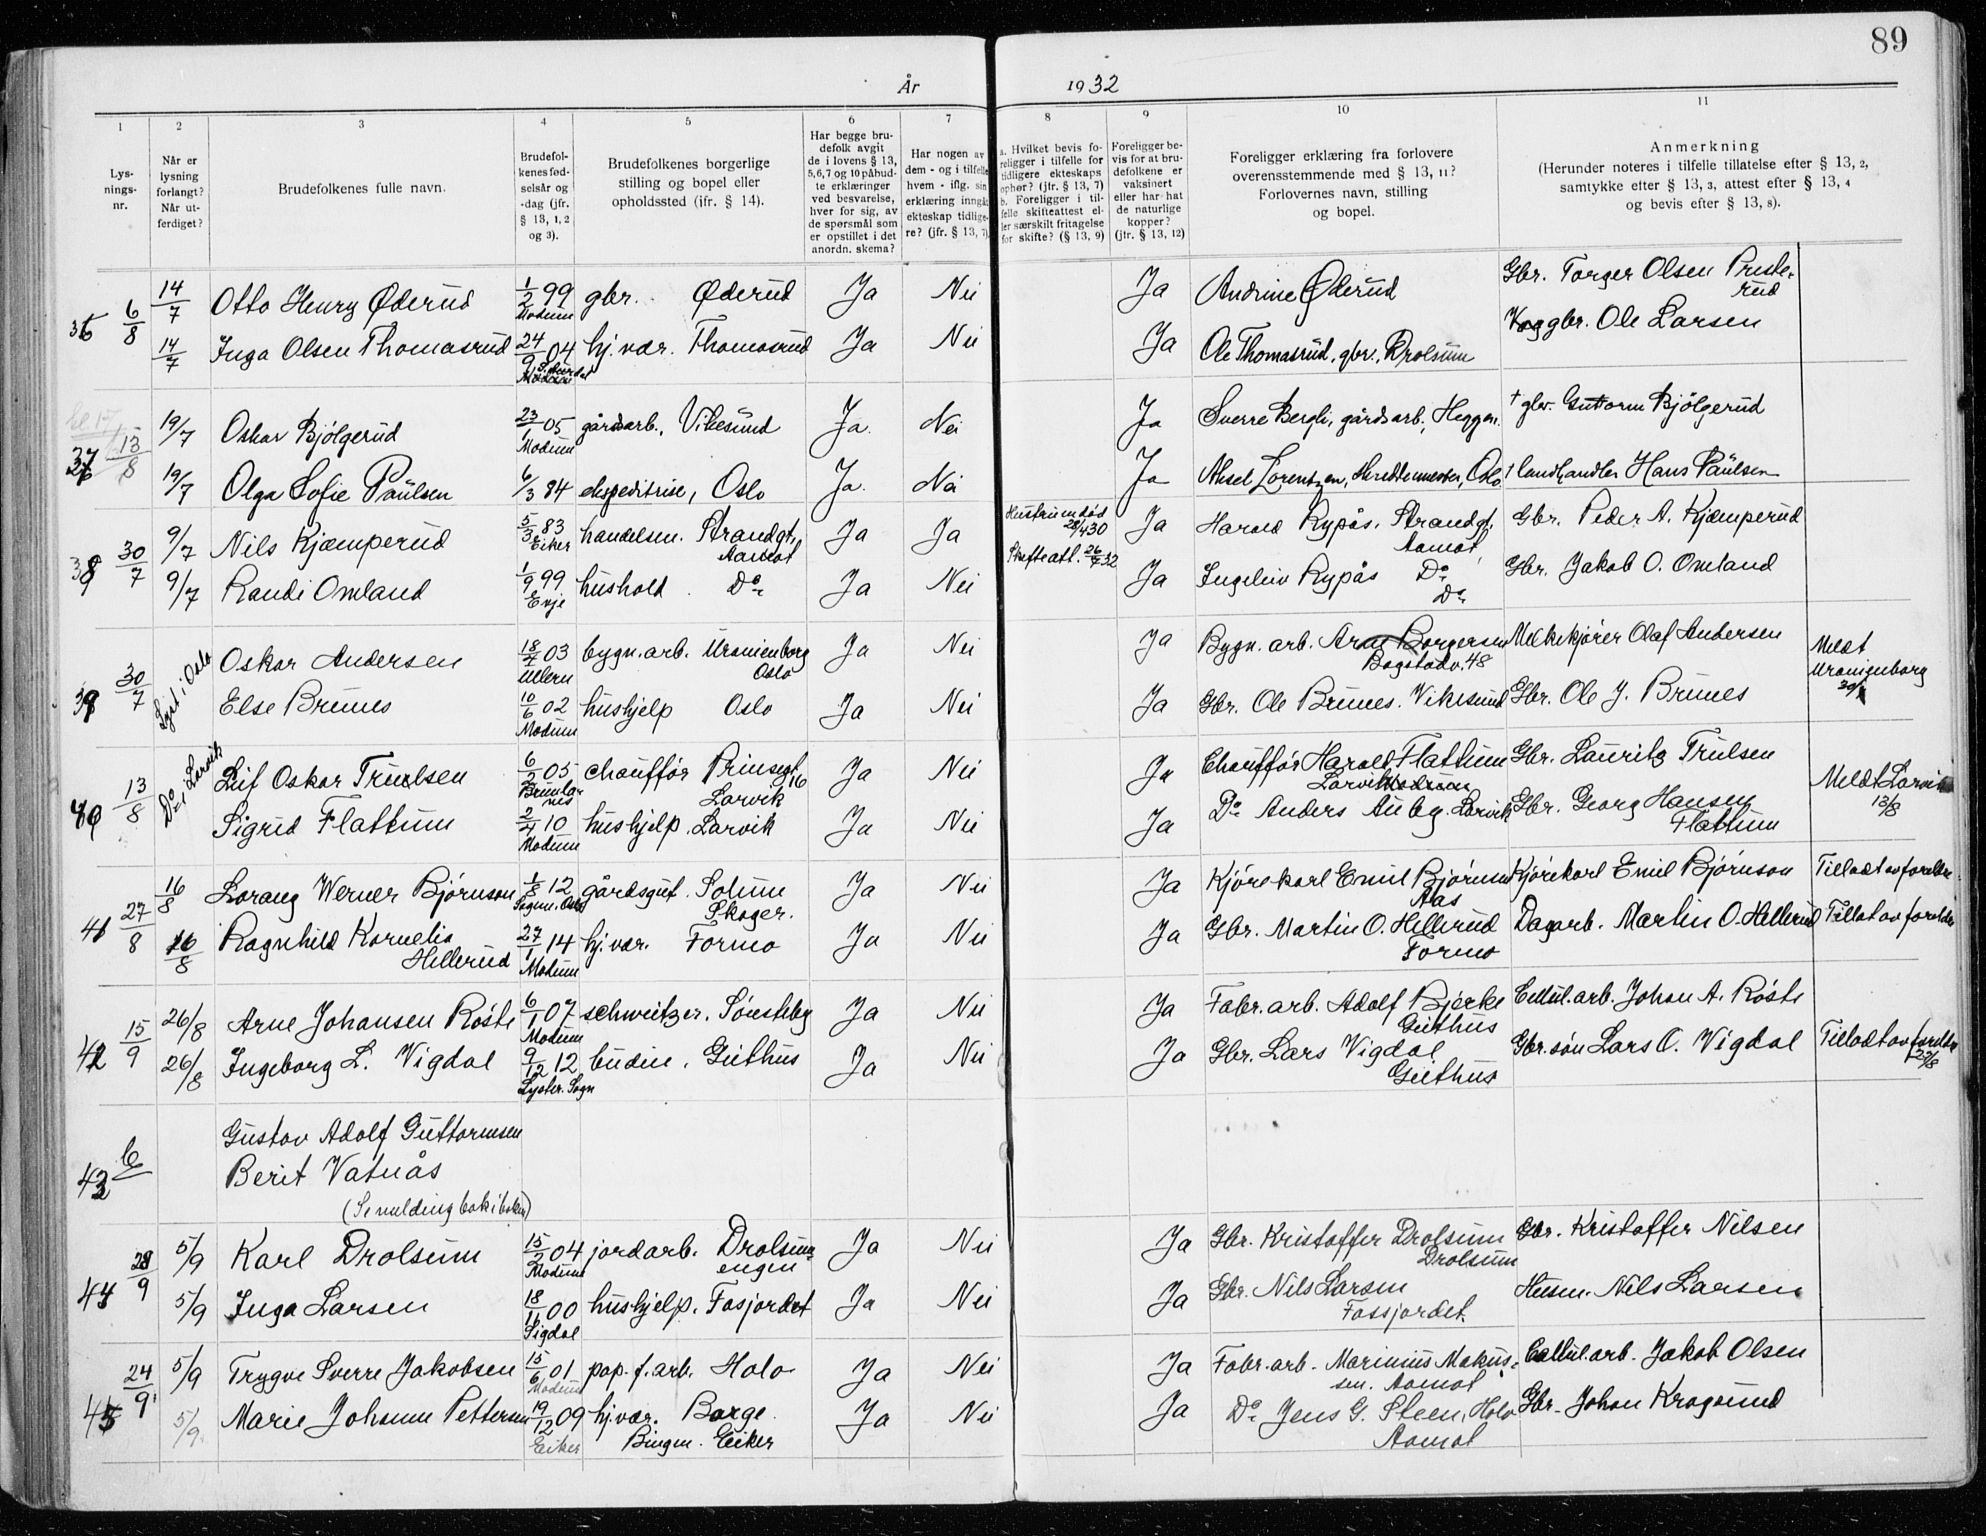 89
År 1932
1 2 3 4 5 6 7 8 9 10 11
Lys-
nings-
nr.
Når er
lysning
forlangt?
Når ut-
ferdiget?
Brudefolkenes fulle navn.
Brudefol-
kenes fød-
selsår og
-dag (jfr.
§ 13, 1, 2
og 3).
Brudefolkenes borgerlige
stilling og bopel eller
opholdssted (jfr. § 14).
Har begge bru-
defolk avgit
de i lovens § 13,
5, 6, 7 og 10 påbud-
te erklæringer
ved besvarelse,
hver for sig, av
de spørsmål som
er opstillet i det
anordn. skema?
Har nogen av
dem - og i tilfelle
hvem - iflg. sin
erklæring inngåt
ekteskap tidlige-
re? (jfr. § 13, 7)
a. Hvilket bevis fo-
religger i tilfelle for
tidligere ekteskaps
ophør? (jfr. § 13, 7)
b. Foreligger i til-
felle skifteattest el-
ler særskilt fritagelse
for skifte? (§ 13, 9)
Foreligger be-
vis for at bru-
defolkene er
vaksinert
eller har hat
de naturlige
kopper?
(jfr. § 13, 12)
Foreligger erklæring fra forlovere
overensstemmende med § 13, 11?
Forlovernes navn, stilling
og bopel.
Anmerkning
(Herunder noteres i tilfelle tillatelse efter § 13, 2,
samtykke efter § 13, 3, attest efter § 13, 4
og bevis efter § 13, 8).
36 6/8 14/7 Otto Henry Øderud 1/2 99 Modum gbr. Øderud Ja Nei Ja Andrine Øderud Gbr. Torger Olsen Preste-
rud
14/7 Inga Olsen Thomasrud 24/9 04 hj. vær. Thomasrud Ja Nei Ja Ole Thomasrud, gbr., Drolsum gbr. Ole Larsen
37 13/8 19/7 Oskar Bjölgerud 23/1 05 Modum gårdsarb., Vikesund Ja. Nei Ja Sverre Bergli, gårdsarb., Heggen. † gbr. Guttorm Bjölgerud
19/7 Olga Sofie Paulsen 6/3 84 ekspeditrise, Oslo Ja. Nei Ja Aksel Lorentzen, skreddermester, Oslo † landhandler Hans Paulsen
38 30/7 9/7 Nils Kjæmperud 5/3 83 Eiker handelsm. Strandgt, Ja Ja Hustruen död 28/4 30 Ja Harald Rypås, Strandgt, Gbr. Peder A. Kjæmperud
Aamot Skifteatt. 26/7 32 Aamot
9/7 Randi Omland 1/9 99 Evje hushold. Do Ja Nei Ja Ingeleiv Rypås Do Gbr. Jakob O. Omland
Do
39 30/7 Lyst i Oslo Oskar Andersen 18/7 03 Ullern bygn. arb. Uranienborg Ja Nei Ja Bygn. arb. Arne Borgersen Melkekjører Olaf Andersen Meldt
Oslo Bogstadv. 48 Uranienborg
30/7
Else Brunes 10/6 02 Modum hushjelp Oslo Ja Nei Ja Gbr. Ole Brunes. Vikesund Gbr. Ole J. Brunes
40 13/8 Do i Larvik Leif Oskar Truelsen 6/2 05 Brunlanes chauffør Prinsegt 16 Ja Nei Ja Chauffør Harald Flattum Gbr. Lauritz Trulsen Meldt Larvik
Larvik Larvik 13/8
Sigrid Flattum 2/4 10 Modum hushjelp. Larvik Ja Nei Ja Do Anders Auby. Larvik Gbr. Georg Hansen
Flattum
41 27/8 16/8 Lorang Werner Bjørnson 1/8 12 gårdsgut. Solum Ja Nei Ja Kjörekarl Emil Bjørnson Kjörekarl Emil Bjørnson Tilladt av foreldre.
Skoger. Aas
16/8 Ragnhild Kornelia 27/1 14 Modum hj. vær. Formo Ja Nei Ja Gbr. Martin O. Hellerud Dagarb. Martin O. Hellerud Tillat av foreldre
Hellerud Formo
42 15/9 26/8 Arne Johansen Röste 6/1 07 Modum schweitzer. Sönsteby Ja Nei Ja Fabr. arb. Adolf Bjerke Cellul. arb. Johan A. Röste
Geithus
26/8 Ingeborg L. Vigdal 9/12 12 Lyster. Sogn budeie, Geithus Ja Nei Ja Gbr. Lars Vigdal Gbr. søn Lars O. Vigdal Tilladt av foreldre
Geithus 27/8
43 6 Gustav Adolf Guttormsen
Berit Vatnås
(Se melding bak i boken)
44 28/9 5/9 Karl Drolsum 15/2 04 Modum jordarb. Drolsums Ja Nei Ja Gbr. Kristoffer Drolsum Gbr. Kristoffer Nilsen
engen Drolsum
5/9 Inga Larsen 18/11 00 Sigdal hushjelp. Fosjordet Ja Nei Ja Gbr. Nils Larsen Husm. Nils Larsen
Fossjordet.
45 24/9 5/9 Trygve Sverre Jakobsen 15/6 01 Modum pap. f. arb. Holo Ja Nei Ja Fabr. arb. Marinius Makus- Cellul. arb. Jakob Olsen
sen. Aamot
5/9. Marie Johanne Pettersen 19/12 09 Eiker hj. vær. Borge Ja Nei Ja Do Jens G. Steen, Holo Gbr. Johan Kragsund
Bingen. Eiker Aamot